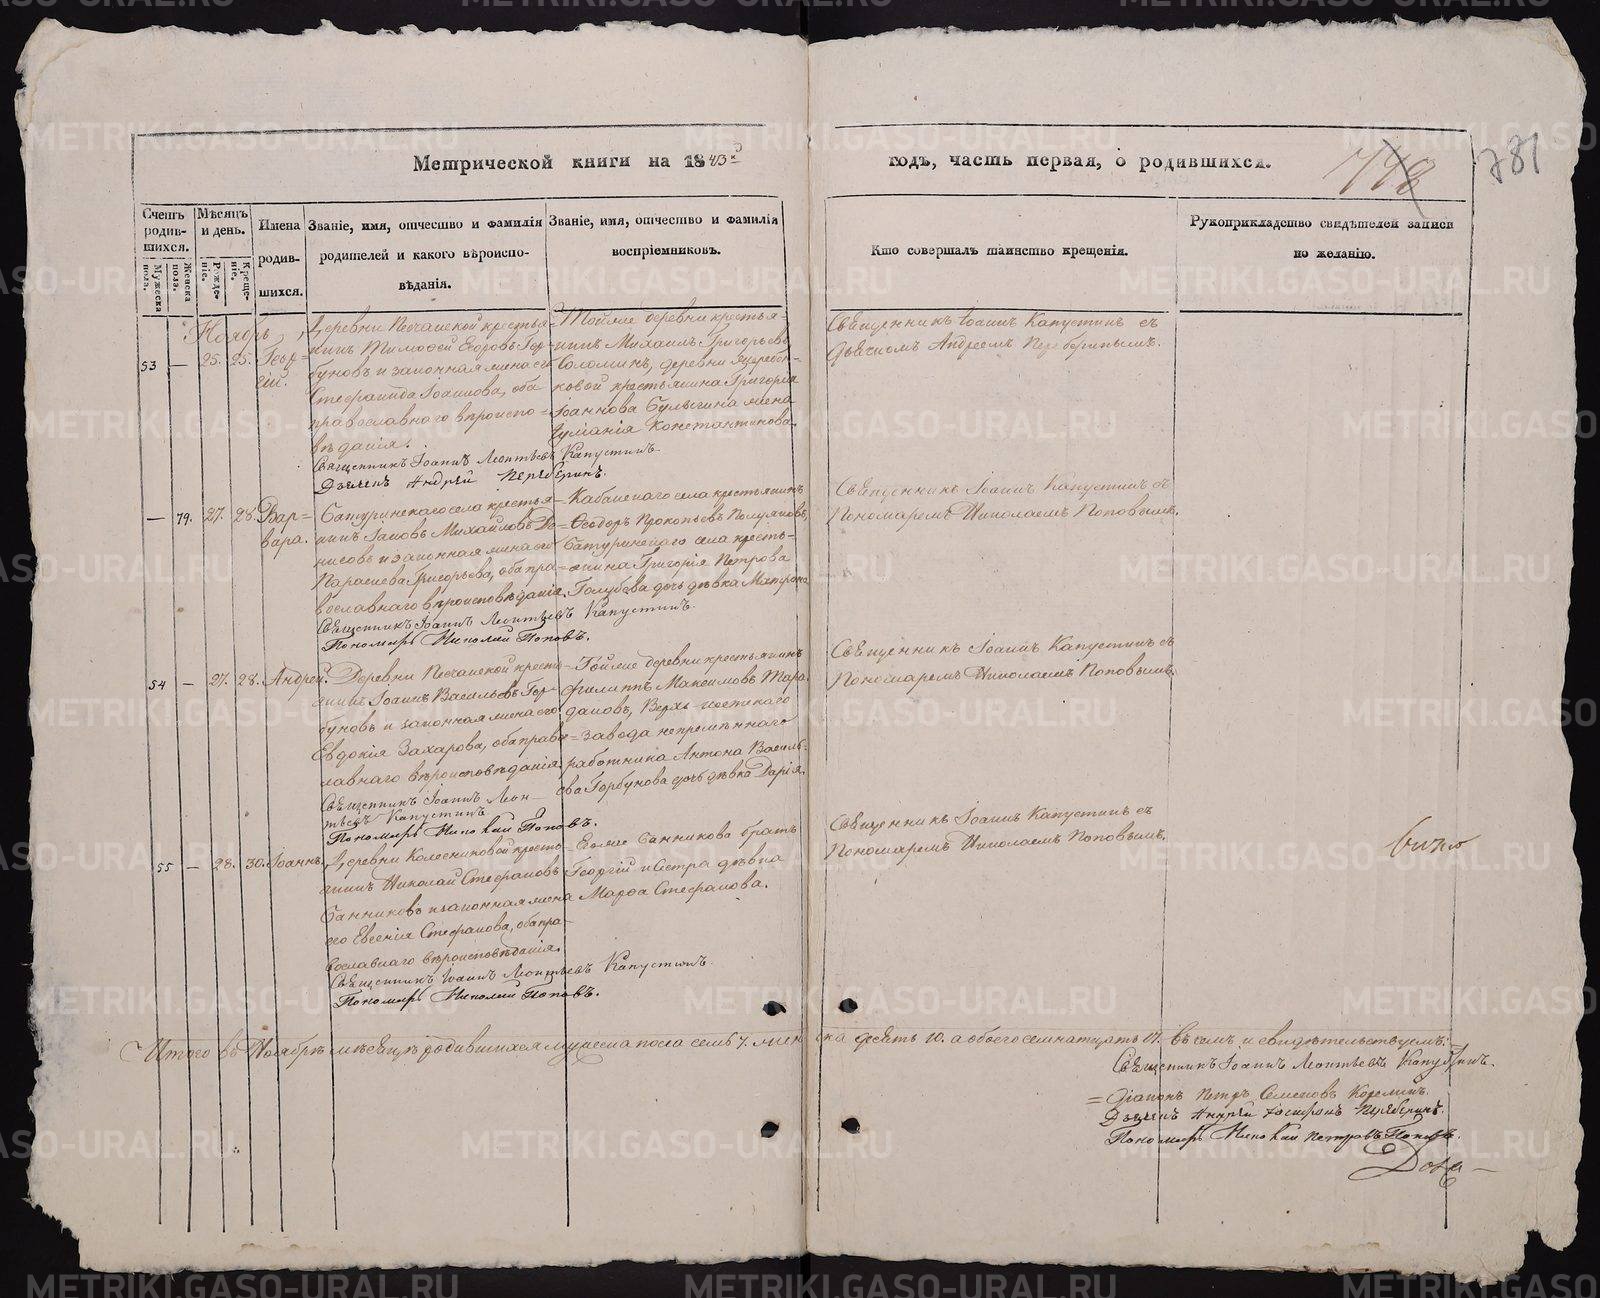 Метрической книги на 1843й
годъ, часть первая, о родившихся.
778
781
Счетъ родившихся.
Мужеска пола.
Женска пола.
Мѣсяцъ и день.
Рожденіе.
Крещеніе.
Имена родившихся.
Званіе, имя, отчество и фамилія родителей и какого вѣроисповѣданія.
Званіе, имя, отчество и фамилія воспріемниковъ.
Кто совершалъ таинство крещенія.
Рукоприкладство свидѣтелей записи по желанію.
Ноябрь
53 — 25. 25. Геор=
гій.
Деревни Песчанской крестья=
нинъ Тимофей Егоровъ Гор=
буновъ и законная жена его
Стефанида Іоаннова, оба
православнаго вѣроиспо=
вѣданія.
Тойже деревни крестья=
нинъ Михаилъ Григорьевъ
Соломинъ, деревни
ковой крестьянина Григорія
Іоаннова Булыгина жена
Іуліанія Константинова.
Священникъ Іоаннъ Капустинъ съ
Дьячкомъ Андреемъ Переберинымъ.
Священникъ Іоаннъ Леонтьевъ Капустинъ.
Дьячекъ Андрей Переберинъ.
— 79. 27. 28. Вар=
вара.
Батуринскаго села крестья=
нинъ Іаковъ Михайловъ Де=
нисовъ и законная жена его
Параскева Григорьева, оба пра=
вославнаго вѣроисповѣданія.
Кабанскаго села крестьянинъ
Ѳеодоръ Прокопьевъ Полуяновъ,
Батуринскаго села кресть=
янина Григорія Петрова
Голубева дочь дѣвка Матрона
Священникъ Іоаннъ Капустинъ съ
Пономаремъ Николаемъ Поповымъ.
Священникъ Іоаннъ Леонтьевъ Капустинъ.
Пономарь Николай Поповъ.
54 — 27. 28. Андрей.
Деревни Песчанской кресть=
янинъ Іоаннъ Васильевъ Гор=
буновъ и законная жена его
Евдокія Захарова, оба право=
славнаго вѣроисповѣданія.
Тойже деревни крестьянинъ
Филиппъ Максимовъ Тара=
дановъ, Верхъ-Исетскаго
завода непремѣннаго
работника Антона Василь=
ева Горбунова дочь дѣвка Дарія.
Священникъ Іоаннъ Капустинъ съ
Пономаремъ Николаемъ Поповымъ.
Священникъ Іоаннъ Леон=
тьевъ Капустинъ
Пономарь Николай Поповъ.
55 — 28. 30. Іоаннъ.
Деревни Колесниковой кресть=
янинъ Николай Стефановъ
Банниковъ и законная жена
его Евгенія Стефанова, оба пра=
вославнаго вѣроисповѣданія.
Егоже Банникова братъ
Георгій и сестра дѣвка
Марѳа Стефанова.
Священникъ Іоаннъ Капустинъ съ
Пономаремъ Николаемъ Поповымъ.
Священникъ Іоаннъ Леонтьевъ Капустинъ.
Пономарь Николай Поповъ.
Итого въ Ноябрѣ мѣсяцѣ родившихся мужеска пола семь 7. женска десять 10. а обоего семнатцать 17. Въ семъ и свидѣтельствуемъ:
Священникъ Іоаннъ Леонтьевъ Капустинъ.
Діаконъ Петръ Семеновъ Корелинъ.
Дьячекъ Андрей Переберинъ.
Пономарь Николай Петровъ Поповъ.
METRIKI.GASO-URAL.RU